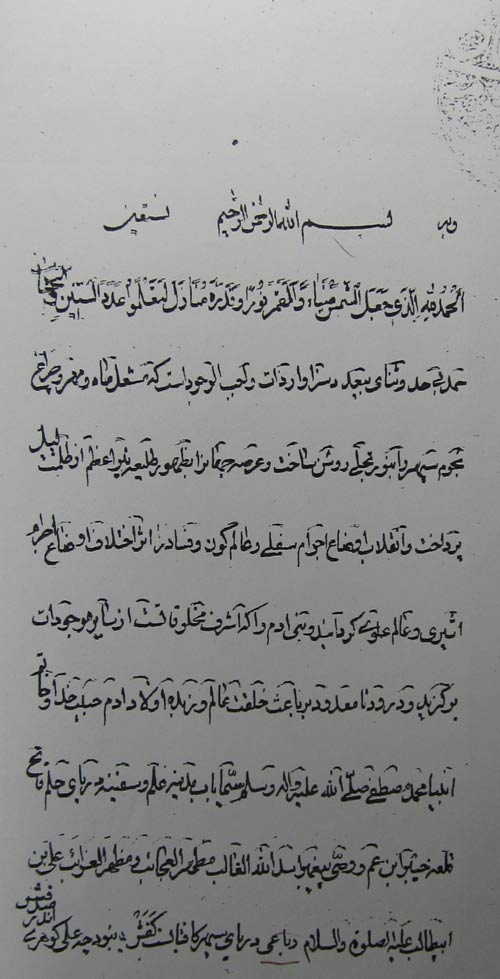 وبه بسم الله الرحمن الرحیم نستعین
الحمد لله الذی جعل الشمس ضیاء والقمر نورا وقدره منازل لتعلموا عدد السنین والحساب
حمد بی حد وثنای بیعد سزاوار ذات واجب الوجودیست که مشعل ماه ومهر وچراغ
نجوم سپهر را بنور تجلی روشن ساخت وعرصه جهانرا بظهور طلیعه نیر اعظم از ظلمت لیل
پرداخت وانقلاب اوضاع اجرام سفلی وعالم کون وفساد را اثر اختلاف اوضاع اجرام
اثیری وعالم علوی گردانید وبنی ادم را که اشرف مخلوقاتست از سایر موجودات
برگزید ودرود نا معدود بر باعث خلقت عالم وزبده اولاد ادم حبیب خدا وخاتم
انبیا محمد مصطفی صلی الله علیه واله وسلم سیما باب مدینه علم وسفینه دریای حلم فاتح
قلعه خیبر ابن عم ووصی پیغمبر اسد الله الغالب مظهر العجائب ومظهر الغرائب علی بن
ابیطالب علیه الصلوة والسلام رباعی دریای سپهر کافتابست کفش نبود چه علی گوهری
اندر صدفش